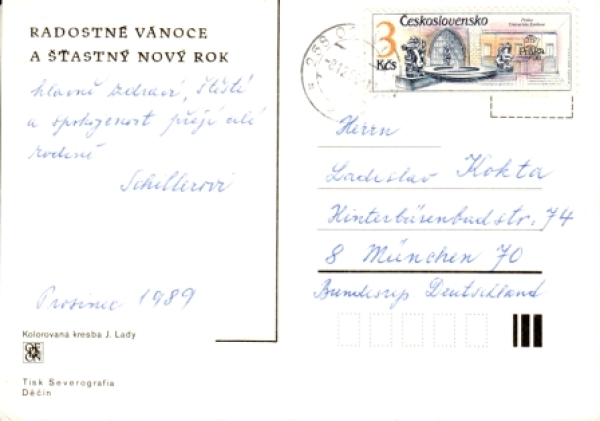 RADOSTNÉ VÁNOCE
A ŠŤASTNÝ NOVÝ ROK
hlavně zdraví, štěstí
a spokojenost přejí celé
rodině
Schillerovi
Prosinec 1989
Kolorovaná kresba J. Lady
Tisk Severografia
Děčín
Československo
3
Kčs
Herrn
Ladislav Kokta
Hinterbärenbadstr. 74
8 München 70
Bundesrep Deutschland